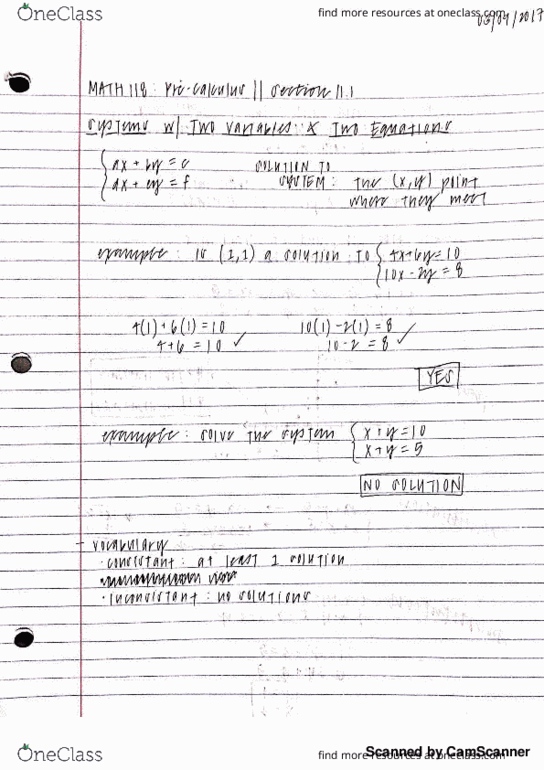 OneClass
find more resources at oneclass.com
03/04/2017
MATH 118: Pre-calculus || section 11.1
systems w/ Two variables & Two Equations
{ax + by = c
{dx + ey = f
SOLUTION TO
SYSTEM: the (x,y) point
where they meet
example: is (1,1) a solution to {4x+6y=10
{10x-2y = 8
4(1) + 6(1) = 10
4+6 = 10 ✓
10(1) - 2(1) = 8
10-2 = 8 ✓
YES
example: solve the system {x + y = 10
{x + y = 5
NO SOLUTION
- vocabulary
· consistant: at least 1 solution
· inconsistant: no solutions
OneClass
find more resources at oneclass.com
Scanned by CamScanner